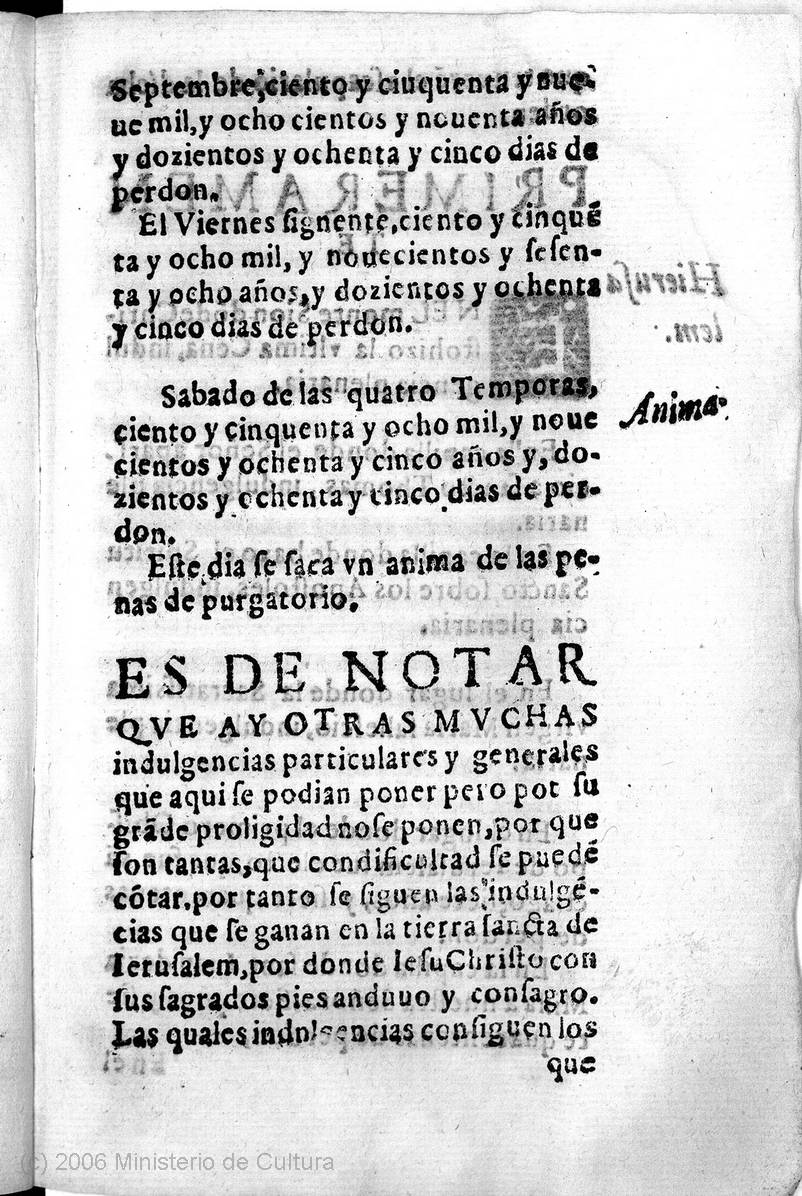 Septembre, ciento y ciuquenta y nue-
ue mil, y ocho cientos y nouenta años
y dozientos y ochenta y cinco dias de
perdon.
El Viernes ſignente, ciento y cinquē
ta y ocho mil, y nouecientos y ſeſen-
ta y ocho años, y dozientos y ochenta
y cinco dias de perdon.
Sabado de las quatro Temporas,
ciento y cinquenta y ocho mil, y noue
cientos y ochenta y cinco años y, do-
zientos y ochenta y cinco dias de per-
don.
Anima.
Eſte dia ſe ſaca vn anima de las pe-
nas de purgatorio.
ES DE NOTAR
QVE AY OTRAS MVCHAS
indulgencias particulares y generales
que aqui ſe podian poner pero pot ſu
grāde proligidad noſe ponen, por que
ſon tantas, que condificultad ſe puedē
cōtar, por tanto ſe ſiguen las indulgē-
cias que ſe ganan en la tierra ſancta de
Ieruſalem, por donde IeſuChriſto con
ſus ſagrados pies anduuo y conſagro.
Las quales indnlgencias conſiguen los
que
(c) 2006 Ministerio de Cultura